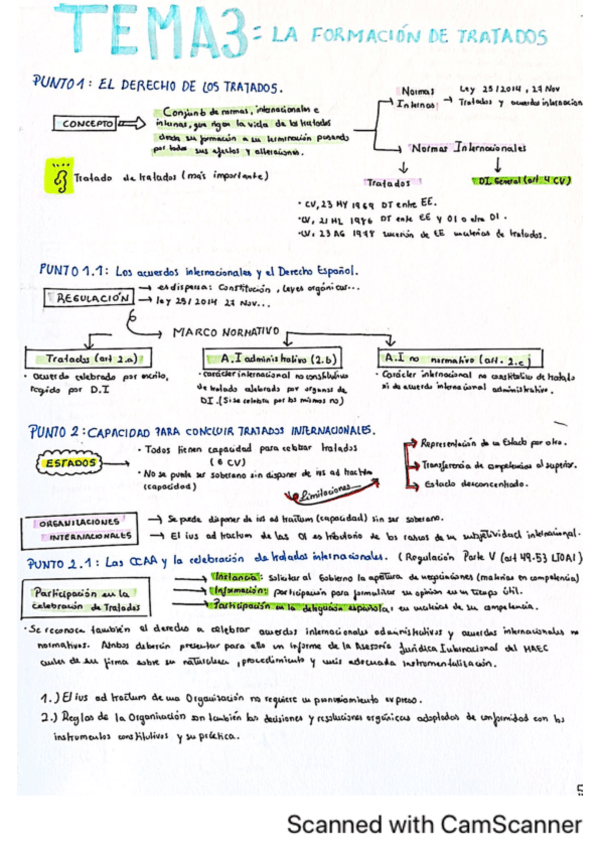 TEMA3: LA FORMACIÓN DE TRATADOS
PUNTO 1: EL DERECHO DE LOS TRATADOS.
CONCEPTO
Conjunto de normas, internacionales e
internas, que rigen la vida de los tratados
desde su formación a su terminación pasando
por todos sus efectos y alteraciones.
Normas
Internas
Ley 25/2014, 27 Nov
Tratados y acuerdos internacion
Normas Internacionales
Tratado de tratados (más importante)
Tratados
DI General (art 4 CV)
· CV, 23 MY 1969 DT entre EE.
· CV, 21 MZ 1986 DT entre EE y OI o otra OI.
· CV, 23 AG 1978 sucesión de EE en materias de tratados.
PUNTO 1.1: Los acuerdos internacionales y el Derecho Español.
REGULACIÓN
es dispersa: Constitución, leyes orgánicas...
ley 25/2014 27 Nov...
MARCO NORMATIVO
Tratados (art 2.a)
· acuerdo celebrado por escrito,
regido por D.I
A.I administrativo (2.b)
· carácter internacional no constitutivo
de tratado celebrado por organos de
DI. (Si se celebra por los mismos no)
A.I no normativo (art. 2.c)
· Carácter internacional no constitutivo de tratado
ni de acuerdo internacional administrativo.
PUNTO 2: CAPACIDAD PARA CONCLUIR TRATADOS INTERNACIONALES.
ESTADOS
· Todos tienen capacidad para celebrar tratados
(6 CV)
· No se puede ser soberano sin disponer de ius ad tractum
(capacidad)
Limitaciones
Representación de un Estado por otro.
Transferencia de competencias al superior.
Estado desconcentrado.
ORGANIZACIONES
INTERNACIONALES
Se puede disponer de ius ad tractum (capacidad) sin ser soberano.
El ius ad tractum de las OI es tributario de los rasgos de su subjetividad internacional.
PUNTO 2.1: Las CCAA y la celebración de tratados internacionales. (Regulación Parte V (art 49-53 LTOAI)
Participación en la
Celebración de Tratados
Instancia: Solicitar al Gobierno la apertura de negociaciones (materias en competencia)
Información: participación para formalizar su opinión en un tiempo útil.
Participación en la delegación española: en materias de su competencia.
· Se reconoce también el derecho a celebrar acuerdos internacionales administrativos y acuerdos internacionales no
normativos. Ambos deberán presentar para ello un informe de la Asesoría Jurídica Internacional del MAEC
antes de su firma sobre su naturaleza, procedimiento y más adecuada instrumentalización.
1.) El ius ad tractum de una Organización no requiere un pronunciamiento expreso.
2.) Reglas de la Organización son también las decisiones y resoluciones orgánicas adoptadas de conformidad con los
instrumentos constitutivos y su práctica.
Scanned with CamScanner